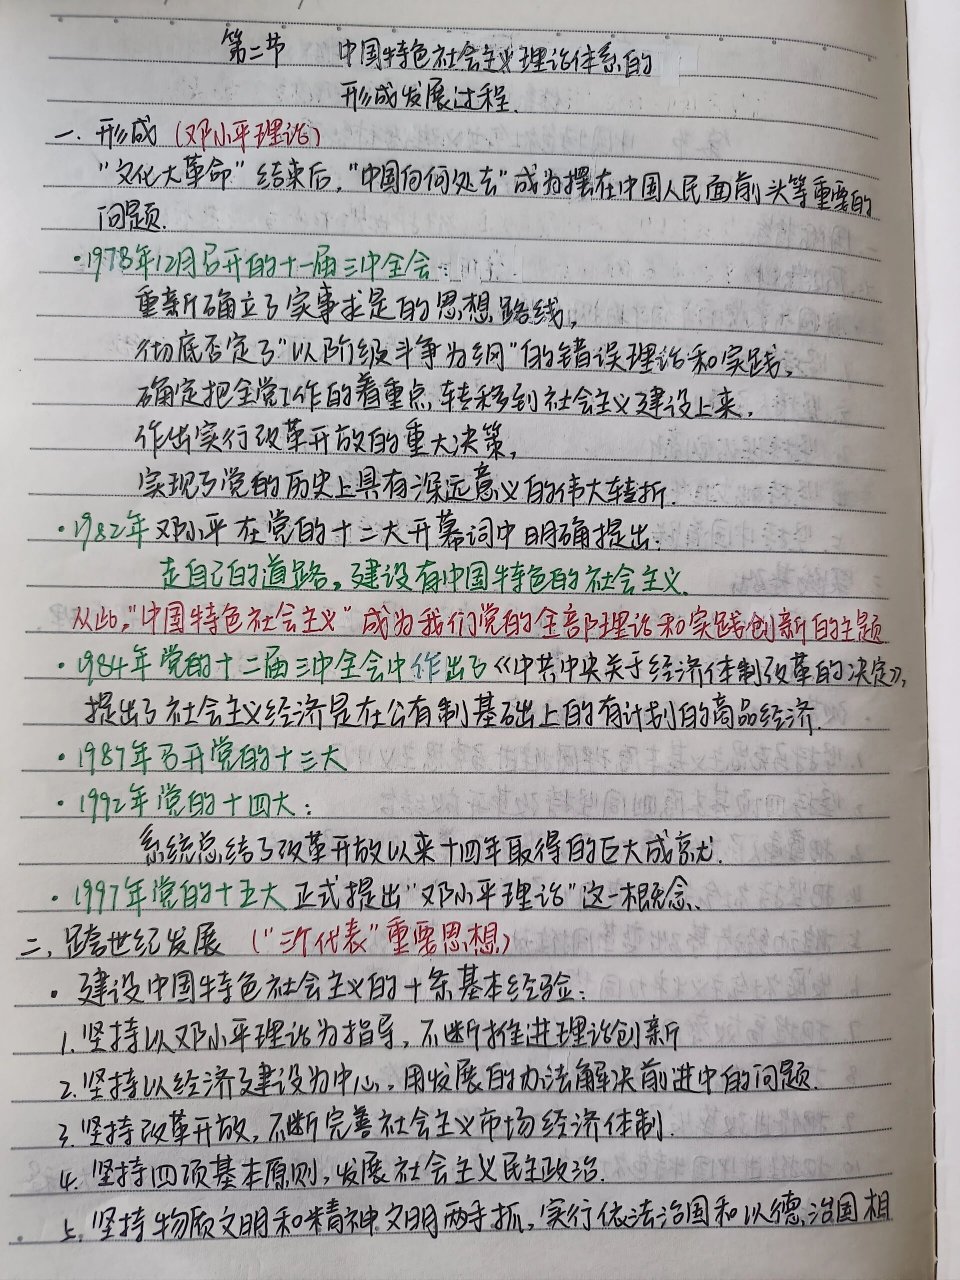 第二节 中国特色社会主义理论体系的
形成发展过程.
一. 形成 (邓小平理论)
"文化大革命"结束后,"中国向何处去"成为摆在中国人民面前头等重要的
问题.
·1978年12月召开的十一届三中全会:
重新确立了实事求是的思想路线,
彻底否定了"以阶级斗争为纲"的错误理论和实践,
确定把全党工作的着重点转移到社会主义建设上来,
作出实行改革开放的重大决策,
实现了党的历史上具有深远意义的伟大转折.
·1982年邓小平在党的十二大开幕词中明确提出:
走自己的道路,建设有中国特色的社会主义.
从此,"中国特色社会主义"成为我们党的全部理论和实践创新的主题
·1984年党的十二届三中全会中作出了《中共中央关于经济体制改革的决定》,
提出了社会主义经济是在公有制基础上的有计划的商品经济.
·1987年召开党的十三大
·1992年党的十四大:
系统总结了改革开放以来十四年取得的巨大成就.
·1997年党的十五大正式提出"邓小平理论"这一概念.
二. 跨世纪发展 ("三个代表"重要思想)
·建设中国特色社会主义的十条基本经验:
1.坚持以邓小平理论为指导,不断推进理论创新
2.坚持以经济建设为中心,用发展的办法解决前进中的问题.
3.坚持改革开放,不断完善社会主义市场经济体制.
4.坚持四项基本原则,发展社会主义民主政治.
5.坚持物质文明和精神文明两手抓,实行依法治国和以德治国相